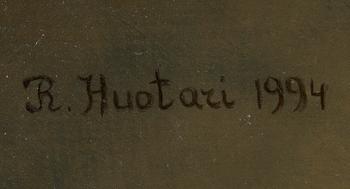 R. Huotari 1994